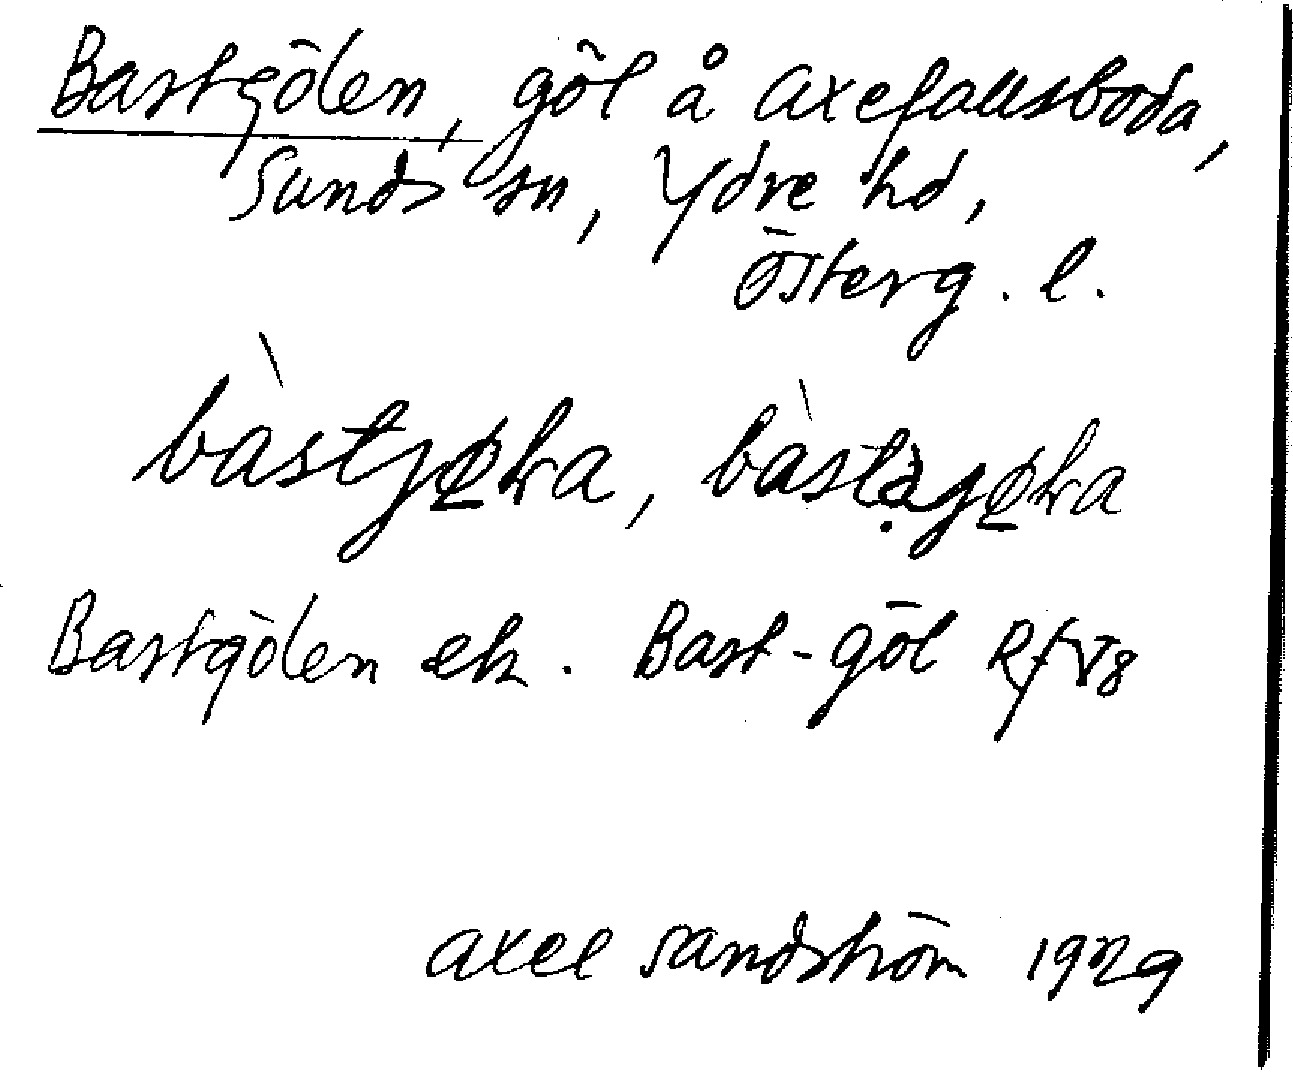 Bastgölen, göl å Axefallsboda,
Sunds sn, Ydre hd,
Österg. l.
Bastgölen ek. Bast-göl Rfv8
Axel Sandström 1929